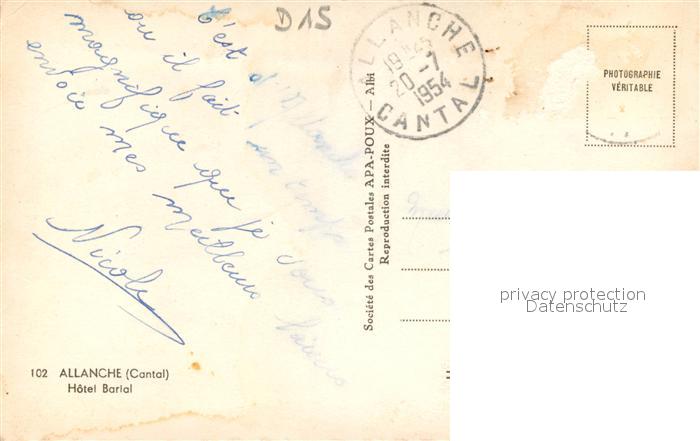 D15
ALLANCHE
19H45
20-7
1954
CANTAL
PHOTOGRAPHIE
VÉRITABLE
C'est d'Allanche
où il fait un temps
magnifique que je vous
envoie mes meilleurs baisers
Nicole
Société des Cartes Postales APA-POUX — Albi
Reproduction interdite
privacy protection
Datenschutz
102 ALLANCHE (Cantal)
Hôtel Barial